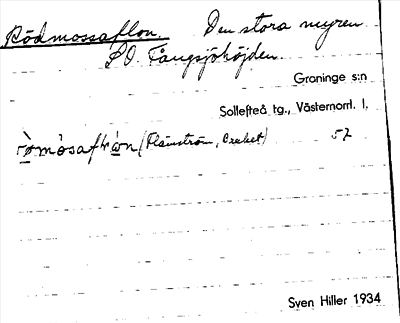 Rödmossaflon. Den stora myren
SO. Fångsjöhöjden.
Graninge s:n
Sollefteå tg., Västernorrl. l.
(Flämström, Bruket) 57
Sven Hiller 1934